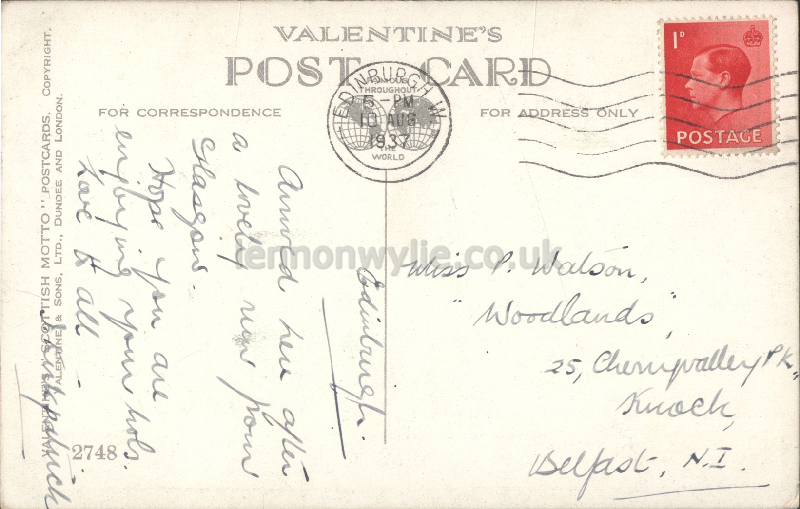 VALENTINE'S
POST CARD
FOR CORRESPONDENCE
FOR ADDRESS ONLY
EDINBURGH W.
FAMOUS
THROUGHOUT
5 - PM
10 AUG
1937
THE
WORLD
1D
POSTAGE
"SCOTTISH MOTTO" POSTCARDS. COPYRIGHT.
VALENTINE & SONS, LTD., DUNDEE AND LONDON.
2748
lennonwylie.co.uk
Edinburgh.
Arrived here after
a lovely run from
Glasgow.
Hope you are
enjoying your hols.
Love to all –
Miss P. Watson,
"Woodlands",
25, Cherryvalley Pk,
Knock,
Belfast, N.I.